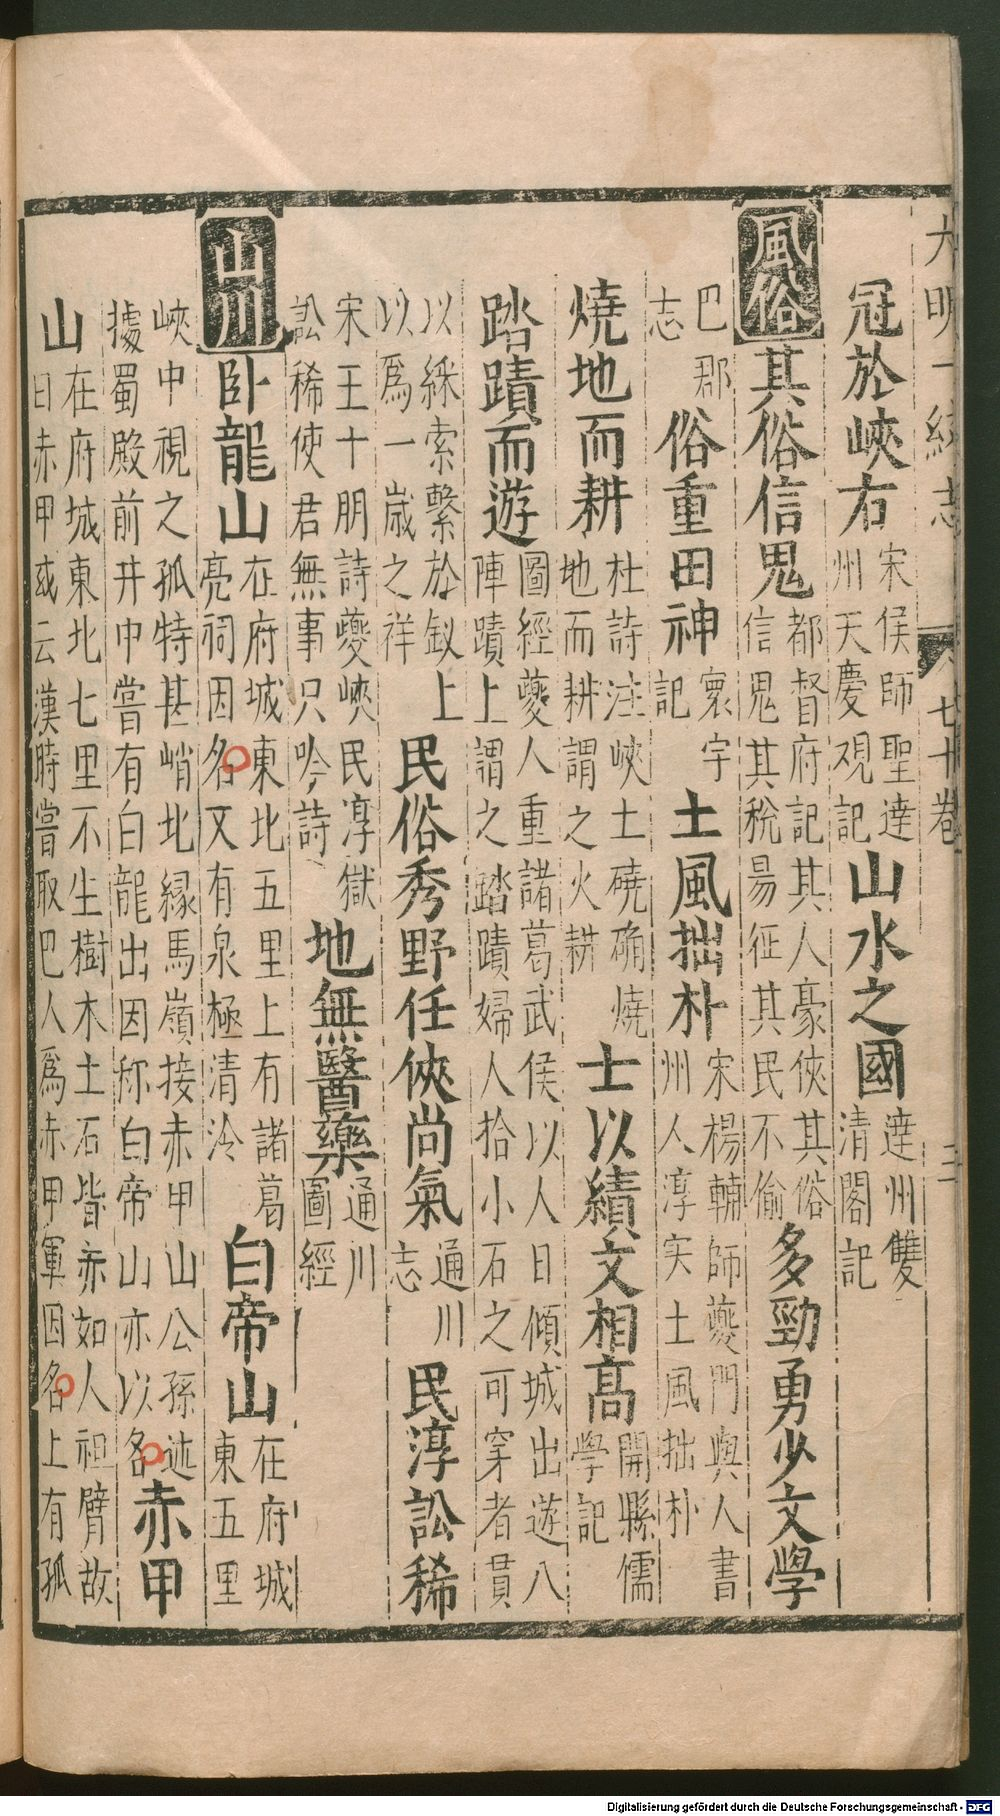 大明一統志 七十卷 三
冠於峽右 宋侯師聖達州天慶观記 山水之國 達州雙清閣記
風俗 其俗信鬼 都督府記其人豪俠其俗信鬼其稅易征其民不偷 多勁勇少文學
巴郡志 俗重田神 寰宇記 土風拙朴 宋楊輔師夔門與人書州人淳实土風拙朴
燒地而耕 杜詩注峽土磽确燒地而耕謂之火耕 士以績文相高 開縣儒學記
踏蹟而遊 圖經夔人重諸葛武侯以人日傾城出遊八陣蹟上謂之踏蹟婦人拾小石之可穿者貫
以綵索繫於釵上以爲一歲之祥 民俗秀野任俠尚氣 通川志 民淳訟稀
宋王十朋詩夔峽民淳獄訟稀使君無事只吟詩 地無醫藥 通川圖經
山川 卧龍山 在府城東北五里上有諸葛亮祠因名又有泉極清泠 白帝山 在府城東五里
峽中視之孤特甚峭北緣馬嶺接赤甲山公孫述據蜀殿前井中嘗有白龍出因称白帝山亦以名 赤甲
山 在府城東北七里不生樹木土石皆赤如人袒臂故曰赤甲或云漢時嘗取巴人爲赤甲軍因名上有孤
Digitalisierung gefördert durch die Deutsche Forschungsgemeinschaft - DFG